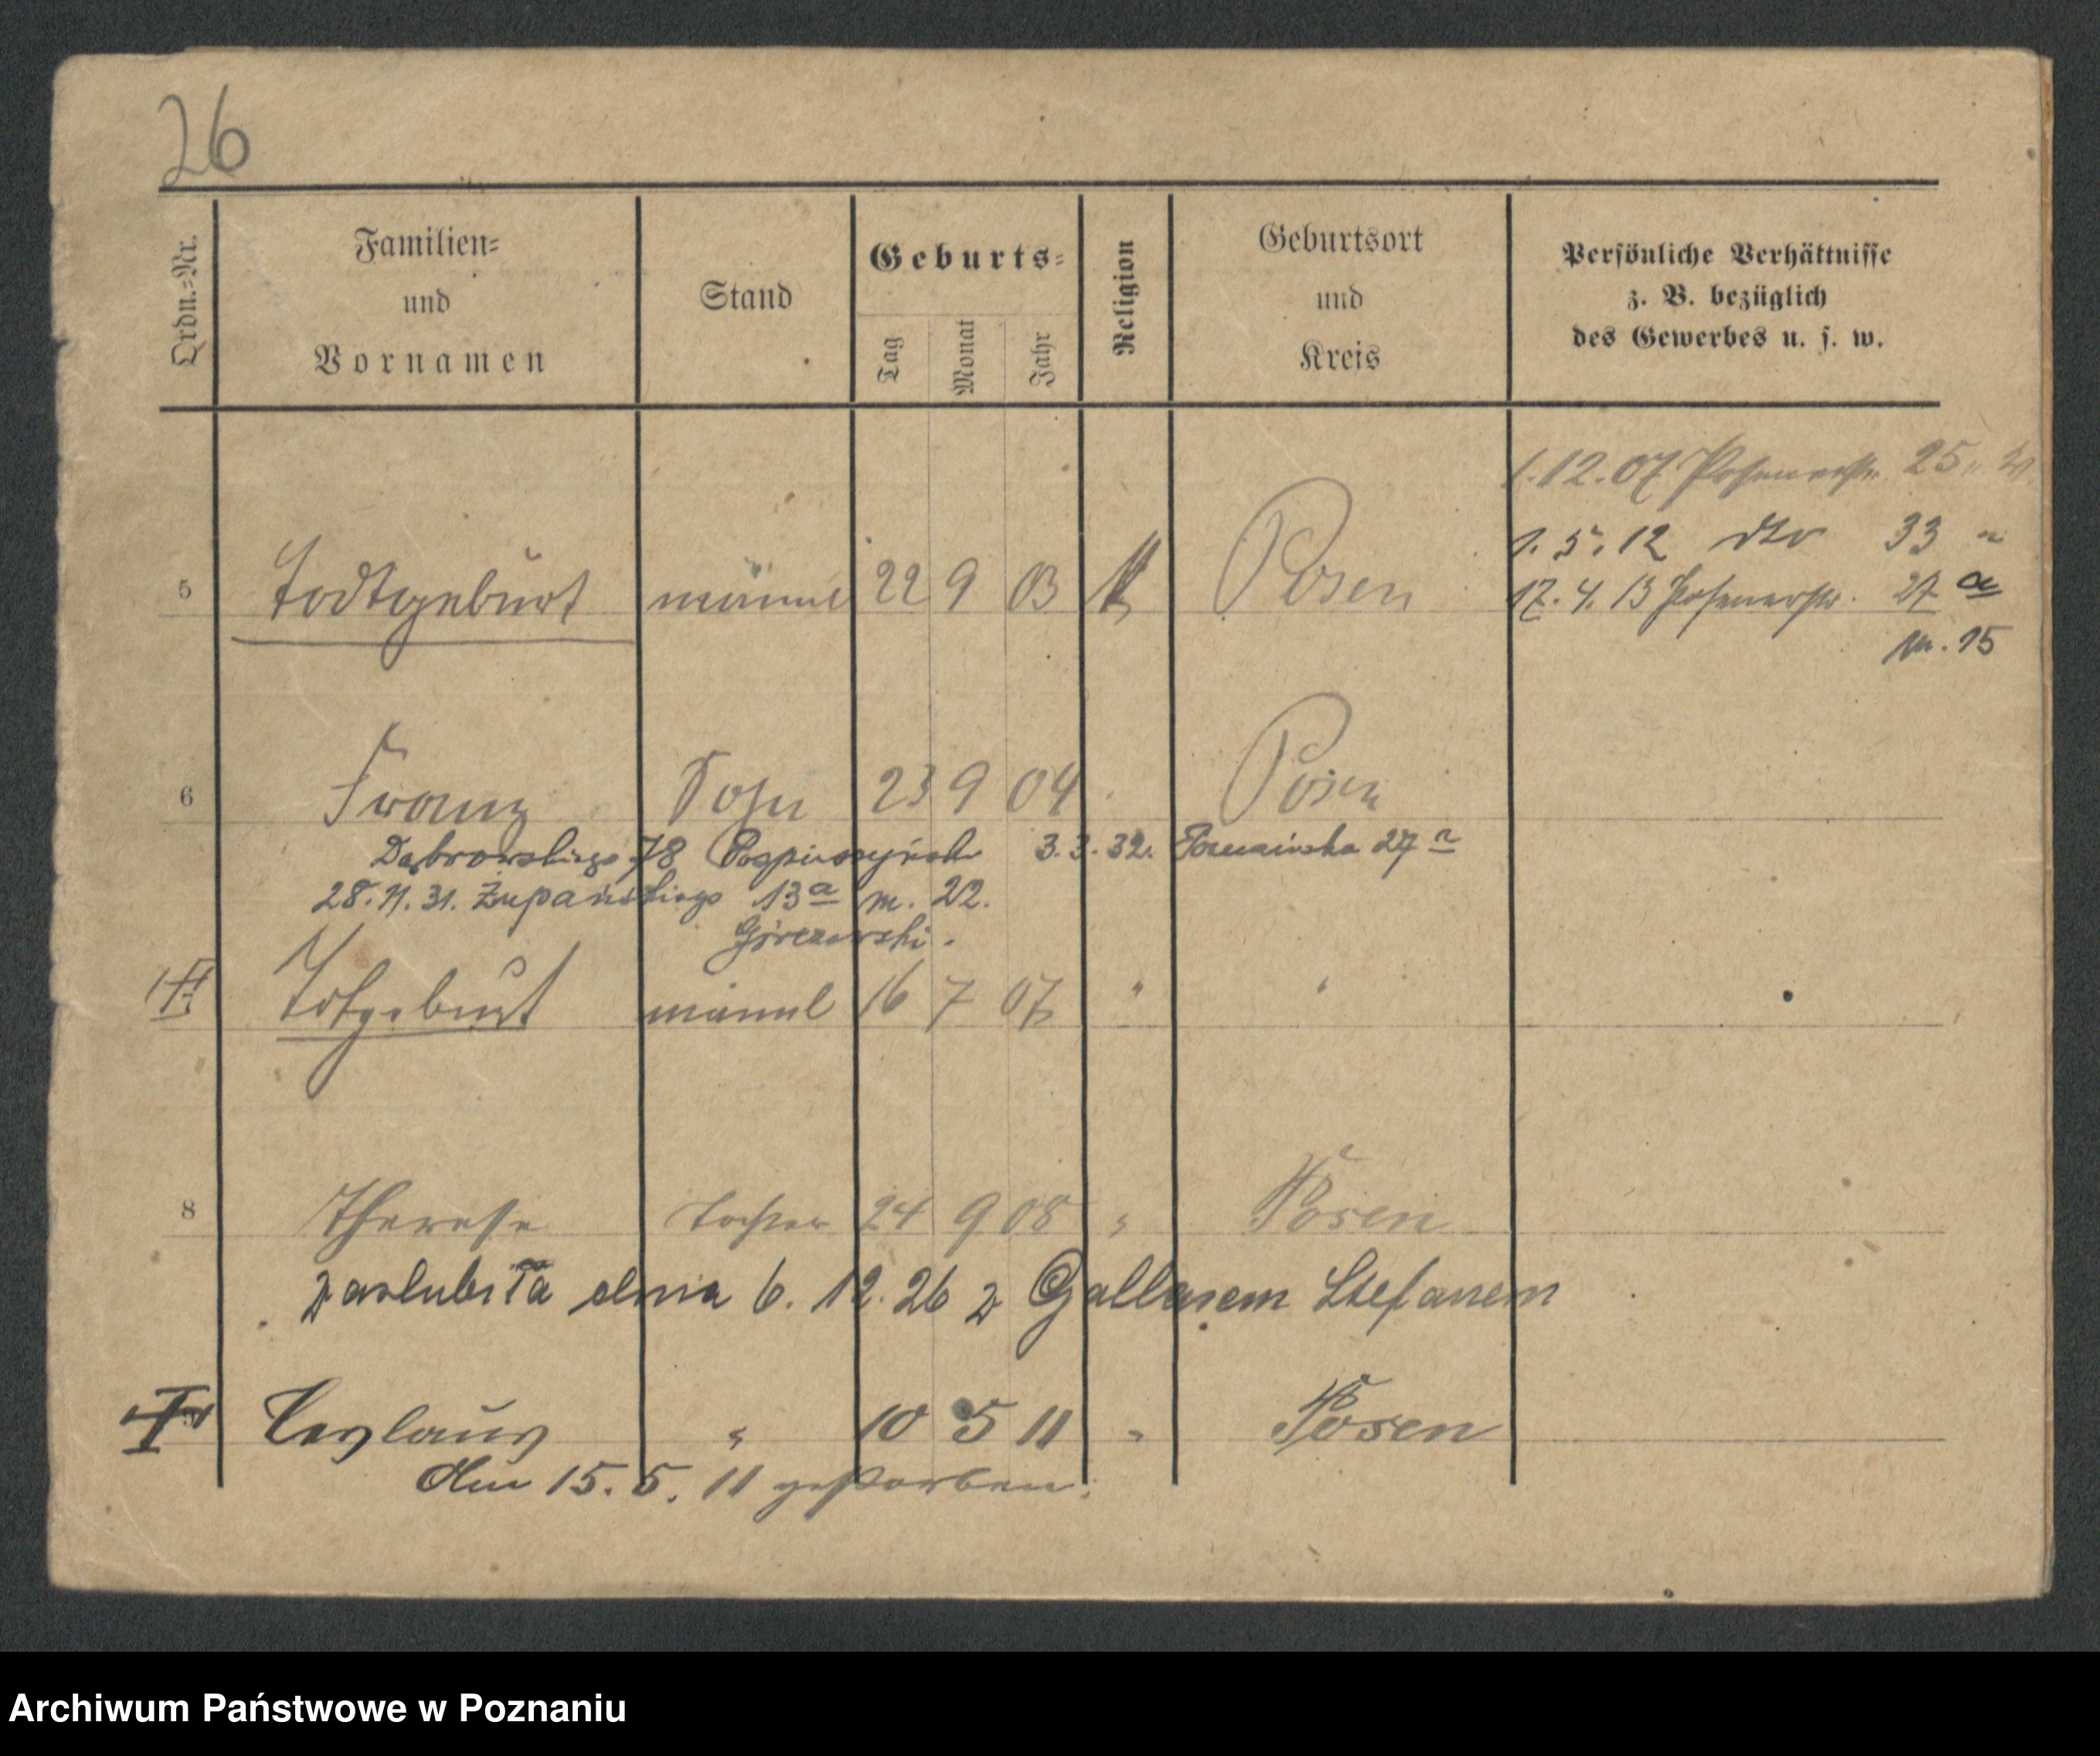 26
Ordn.-Nr.
Familien-
und
Vornamen
Stand
Geburts-
Tag
Monat
Jahr
Religion
Geburtsort
und
Kreis
Persönliche Verhältnisse
z. B. bezüglich
des Gewerbes u. s. w.
1.12.07 Posenerstr. 25
1.5.12 dto 33
5 Todtgeburt männl 22 9 03 k Posen
17.4.13 Posenerstr. 27 a
m. 15
6 Franz Sohn 23 9 04 Posen
Dąbrowskiego 78 3.3.32. Poznańska 27 a
28.11.31. Żupańskiego 13 a m. 22.
Górczewski.
Totgeburt männl 16 7 07 " "
8 Therese Tochter 24 9 08 " Posen
Zaślubiła dnia 6. 12. 26 z Gallasem Stefanem
" 10 5 11 " Posen
Am 15. 5. 11 gestorben.
Archiwum Państwowe w Poznaniu